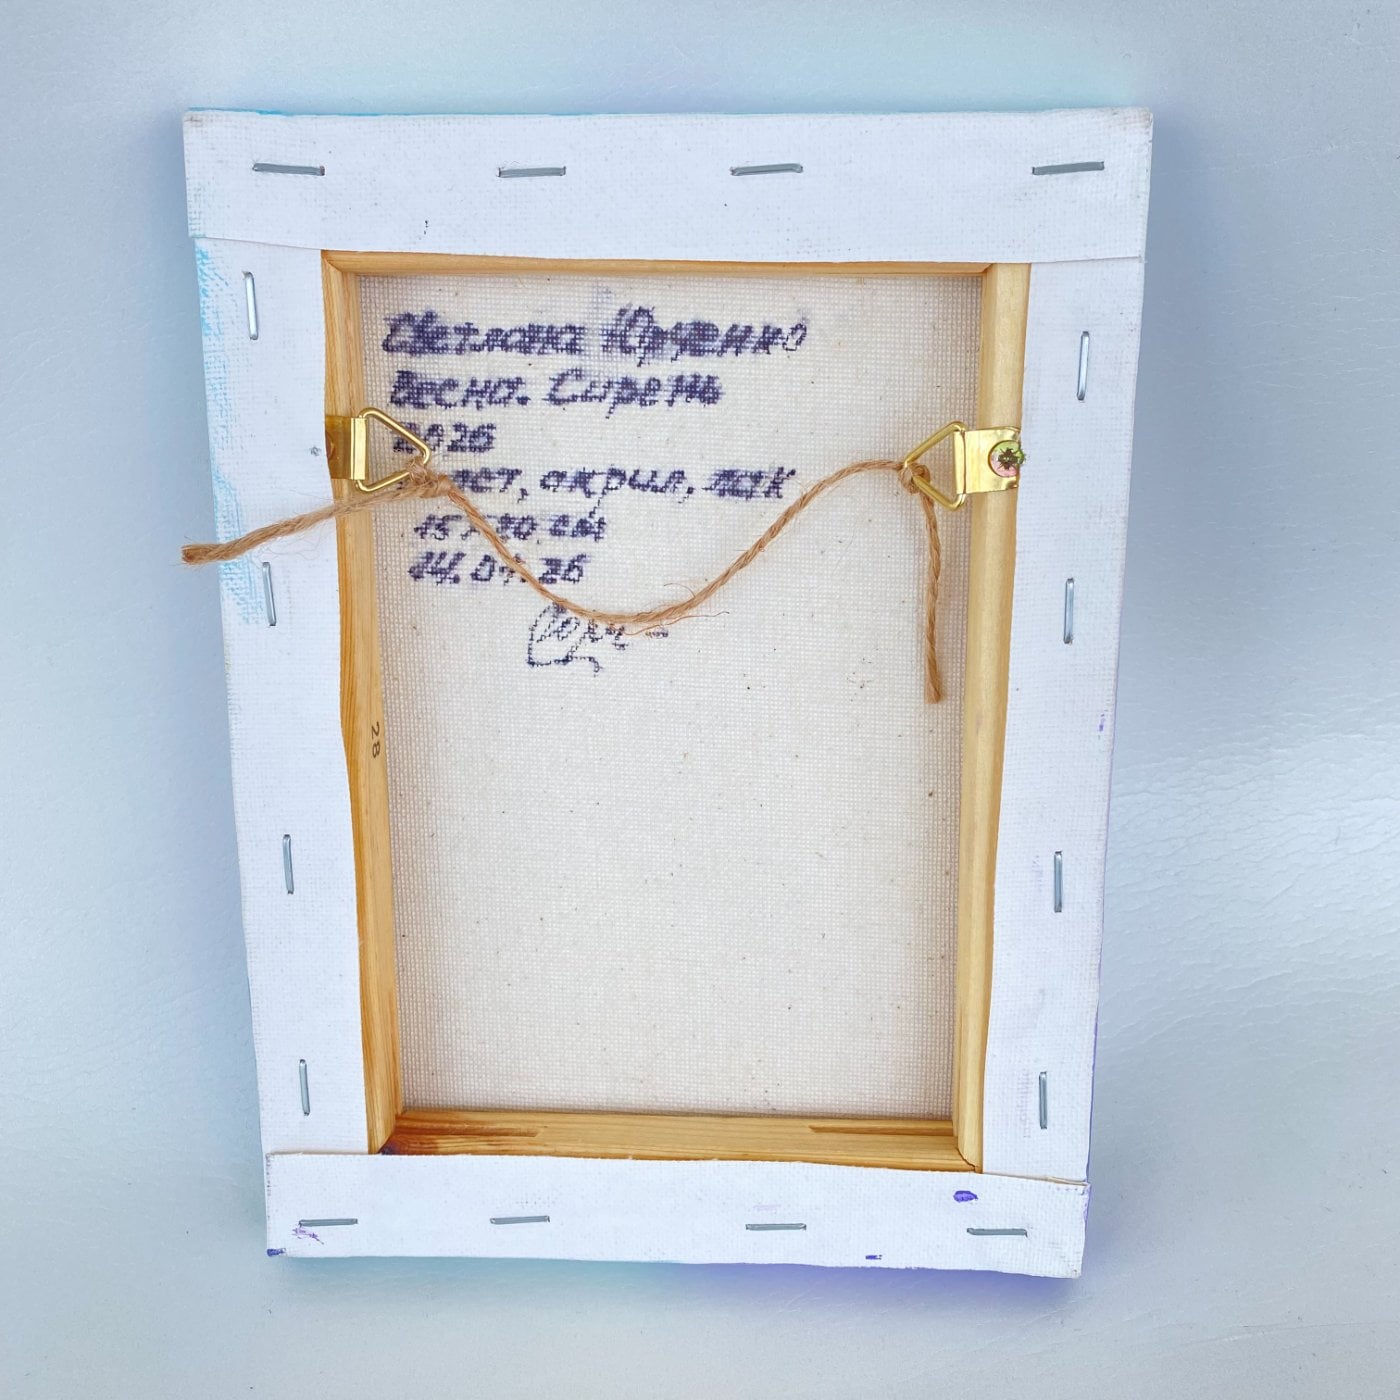 Светлана Юрченко
Весна. Сирень
2026
холст, акрил, лак
15 х 20 см
14.04.26
28